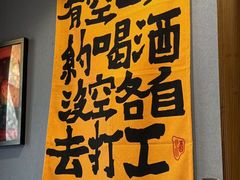 有空
約喝酒
没空各自
去打工